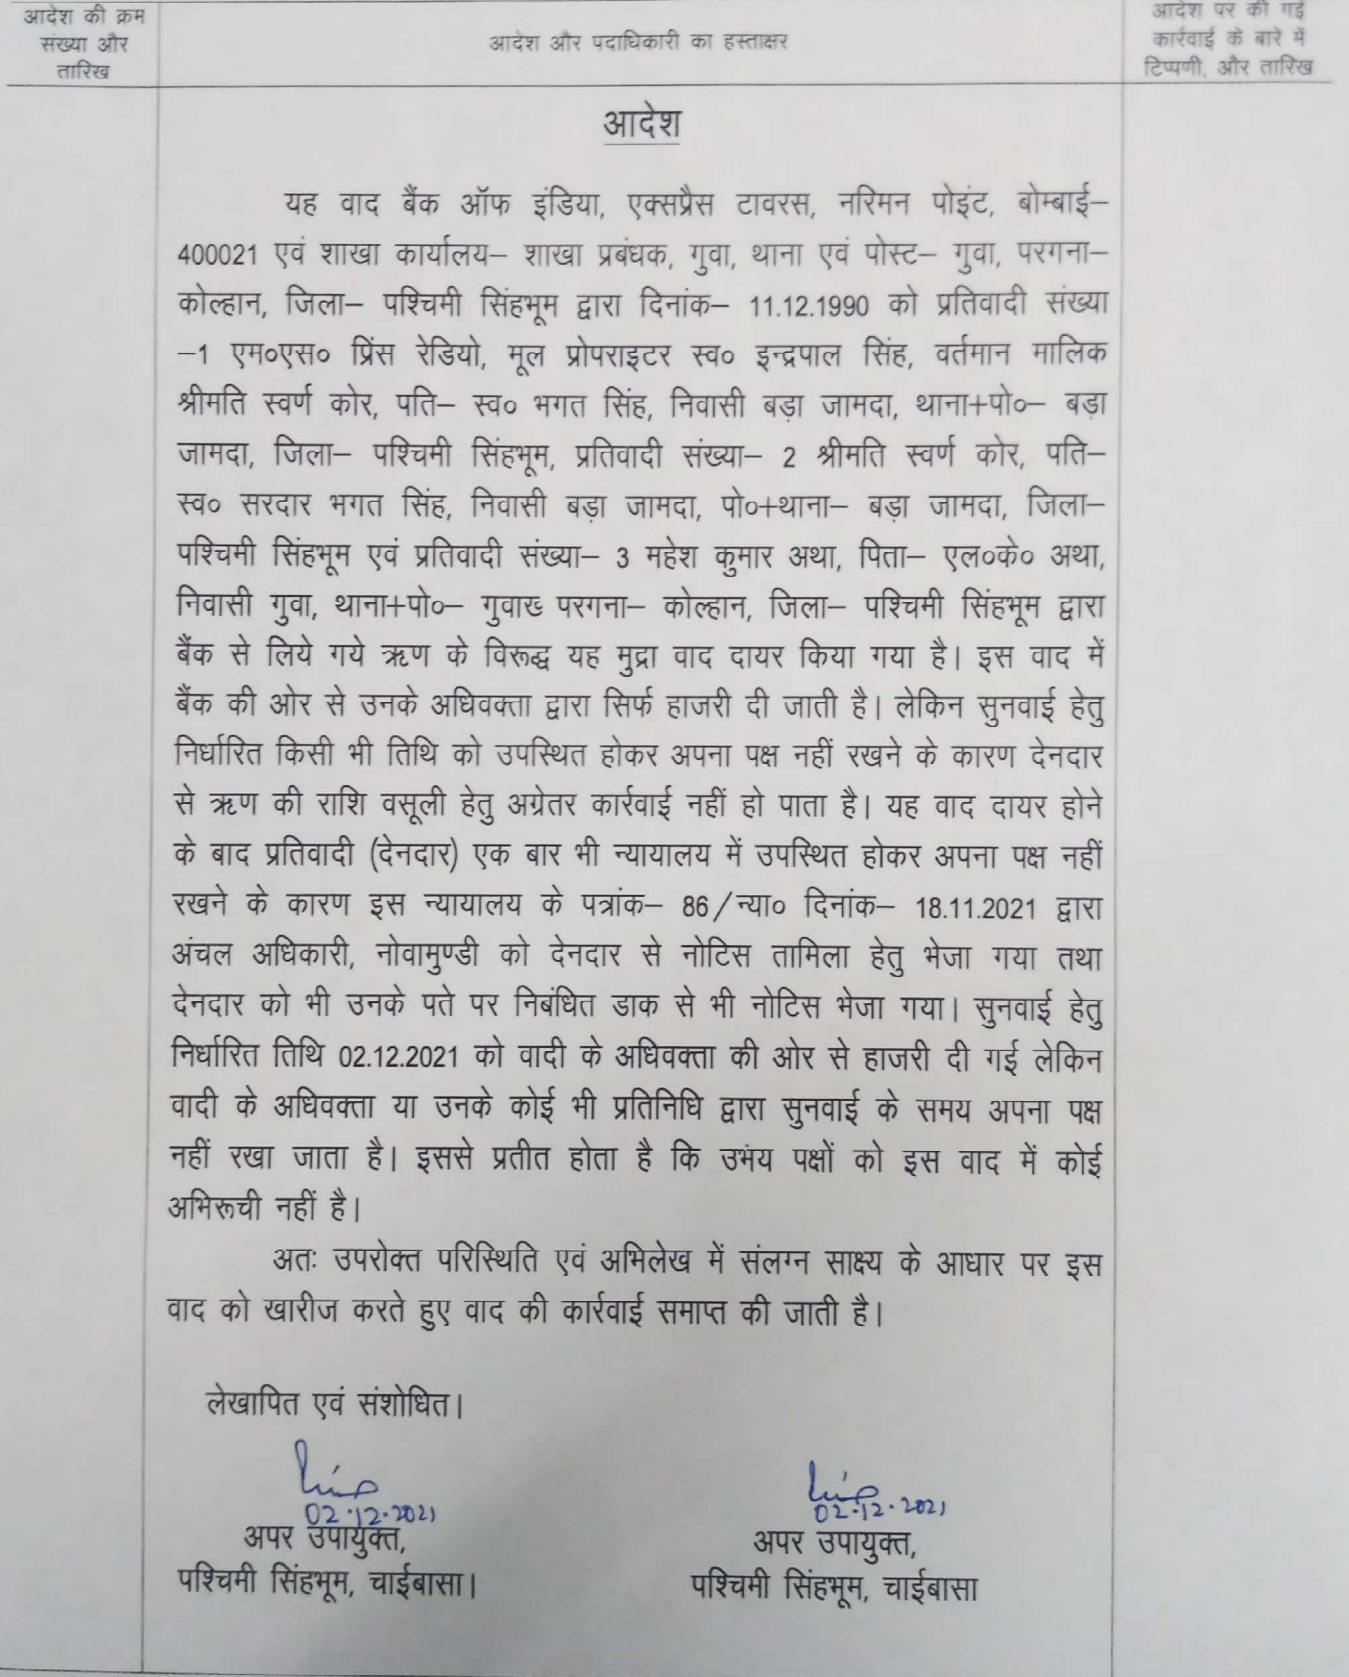 आदेश की क्रम
संख्या और
तारिख
आदेश और पदाधिकारी का हस्ताक्षर
आदेश पर की गई
कार्रवाई के बारे में
टिप्पणी, और तारिख
आदेश
यह वाद बैंक ऑफ इंडिया, एक्सप्रैस टावरस, नरिमन पोइंट, बोम्बाई–
400021 एवं शाखा कार्यालय– शाखा प्रबंधक, गुवा, थाना एवं पोस्ट– गुवा, परगना–
कोल्हान, जिला– पश्चिमी सिंहभूम द्वारा दिनांक– 11.12.1990 को प्रतिवादी संख्या
–1 एम०एस० प्रिंस रेडियो, मूल प्रोपराइटर स्व० इन्द्रपाल सिंह, वर्तमान मालिक
श्रीमति स्वर्ण कोर, पति– स्व० भगत सिंह, निवासी बड़ा जामदा, थाना+पो०– बड़ा
जामदा, जिला– पश्चिमी सिंहभूम, प्रतिवादी संख्या– 2 श्रीमति स्वर्ण कोर, पति–
स्व० सरदार भगत सिंह, निवासी बड़ा जामदा, पो०+थाना– बड़ा जामदा, जिला–
पश्चिमी सिंहभूम एवं प्रतिवादी संख्या– 3 महेश कुमार अथा, पिता– एल०के० अथा,
निवासी गुवा, थाना+पो०– गुवाख् परगना– कोल्हान, जिला– पश्चिमी सिंहभूम द्वारा
बैंक से लिये गये ऋण के विरूद्ध यह मुद्रा वाद दायर किया गया है। इस वाद में
बैंक की ओर से उनके अधिवक्ता द्वारा सिर्फ हाजरी दी जाती है। लेकिन सुनवाई हेतु
निर्धारित किसी भी तिथि को उपस्थित होकर अपना पक्ष नहीं रखने के कारण देनदार
से ऋण की राशि वसूली हेतु अग्रेतर कार्रवाई नहीं हो पाता है। यह वाद दायर होने
के बाद प्रतिवादी (देनदार) एक बार भी न्यायालय में उपस्थित होकर अपना पक्ष नहीं
रखने के कारण इस न्यायालय के पत्रांक– 86/न्या० दिनांक– 18.11.2021 द्वारा
अंचल अधिकारी, नोवामुण्डी को देनदार से नोटिस तामिला हेतु भेजा गया तथा
देनदार को भी उनके पते पर निबंधित डाक से भी नोटिस भेजा गया। सुनवाई हेतु
निर्धारित तिथि 02.12.2021 को वादी के अधिवक्ता की ओर से हाजरी दी गई लेकिन
वादी के अधिवक्ता या उनके कोई भी प्रतिनिधि द्वारा सुनवाई के समय अपना पक्ष
नहीं रखा जाता है। इससे प्रतीत होता है कि उभंय पक्षों को इस वाद में कोई
अभिरूची नहीं है।
अतः उपरोक्त परिस्थिति एवं अभिलेख में संलग्न साक्ष्य के आधार पर इस
वाद को खारीज करते हुए वाद की कार्रवाई समाप्त की जाती है।
लेखापित एवं संशोधित।
02.12.2021
अपर उपायुक्त,
पश्चिमी सिंहभूम, चाईबासा।
02.12.2021
अपर उपायुक्त,
पश्चिमी सिंहभूम, चाईबासा